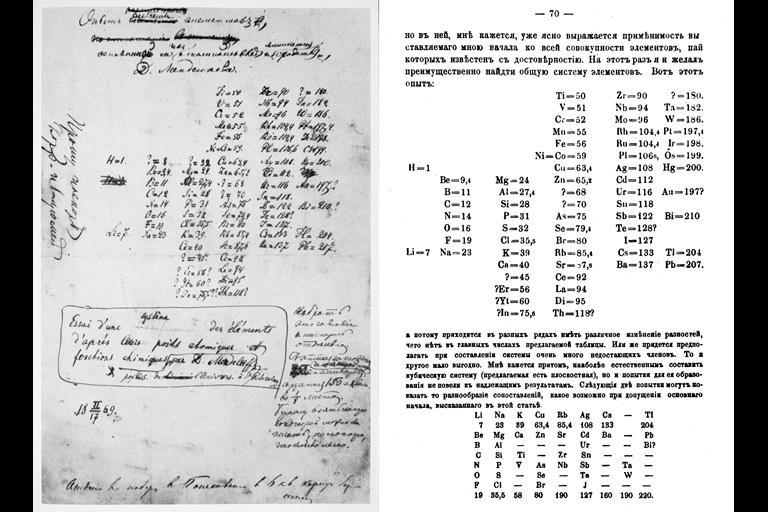 Опытъ системы элементовъ,
основанной на ихъ атомномъ вѣсѣ и химическомъ сходствѣ,
Д. Менделѣевъ.
Ti=50 Zr=90 ?=180.
V=51 Nb=94 Ta=182.
Cr=52 Mo=96 W=186.
Mn=55 Rh=104,4 Pt=197,4
Fe=56 Ru=104,4 Ir=198.
Ni=Co=59 Pl=106,6 Os=199.
H=1. ?=8 ?=22 Cu=63,4 Ag=108 Hg=200.
Be=9,4 Mg=24 Zn=65,2 Cd=112
B=11 Al=27,4 ?=68 Ur=116 Au=197?
C=12 Si=28 ?=70 Sn=118
N=14 P=31 As=75 Sb=122 Bi=210?
O=16 S=32 Se=79,4 Te=128?
F=19 Cl=35,5 Br=80 I=127
Li=7 Na=23 K=39 Rb=85,4 Cs=133 Tl=204
Ca=40 Sr=87,6 Ba=137 Pb=207.
?=45 Ce=92
?Er=56? La=94
?Yt=60? Di=95
?In=75,6? Th=118?
Essai d'une système des éléments
d'après leurs poids atomiques et
fonctions chimiques par D. Mendeleeff
18 II/17 69.
— 70 —
но въ ней, мнѣ кажется, уже ясно выражается примѣнимость вы
ставляемаго мною начала ко всей совокупности элементовъ, пай
которыхъ извѣстенъ съ достовѣрностію. На этотъ разъ я и желалъ
преимущественно найдти общую систему элементовъ. Вотъ этотъ
опытъ:
Ti=50 Zr=90 ?=180.
V=51 Nb=94 Ta=182.
Cr=52 Mo=96 W=186.
Mn=55 Rh=104,4 Pt=197,4
Fe=56 Ru=104,4 Ir=198.
Ni=Co=59 Pl=106,6 Os=199.
H=1 Cu=63,4 Ag=108 Hg=200.
Be=9,4 Mg=24 Zn=65,2 Cd=112
B=11 Al=27,4 ?=68 Ur=116 Au=197?
C=12 Si=28 ?=70 Sn=118
N=14 P=31 As=75 Sb=122 Bi=210
O=16 S=32 Se=79,4 Te=128?
F=19 Cl=35,5 Br=80 I=127
Li=7 Na=23 K=39 Rb=85,4 Cs=133 Tl=204
Ca=40 Sr=87,6 Ba=137 Pb=207.
?=45 Ce=92
?Er=56 La=94
?Yt=60 Di=95
?In=75,6 Th=118?
а потому приходится въ разныхъ рядахъ имѣть различное измѣненіе разностей,
чего нѣтъ въ главныхъ числахъ предлагаемой таблицы. Или же придется предпо-
лагать при составленіи системы очень много недостающихъ членовъ. То и
другое мало выгодно. Мнѣ кажется притомъ, наиболѣе естественнымъ составить
кубическую систему (предлагаемая есть плоскостная), но и попытки для ея образо-
ванія не повели къ надлежащимъ результатамъ. Слѣдующія двѣ попытки могутъ по-
казать то разнообразіе сопоставленій, какое возможно при допущеніи основнаго
начала, высказаннаго въ этой статьѣ.
Li Na K Cu Rb Ag Cs — Tl
7 23 39 63,4 85,4 108 133 204
Be Mg Ca Zn Sr Cd Ba — Pb
B Al — — — Ur — — Bi?
C Si Ti — Zr Sn — — —
N P V As Nb Sb — Ta —
O S — Se — Te — W —
F Cl — Br — J — — —
19 35,5 58 80 190 127 160 190 220.